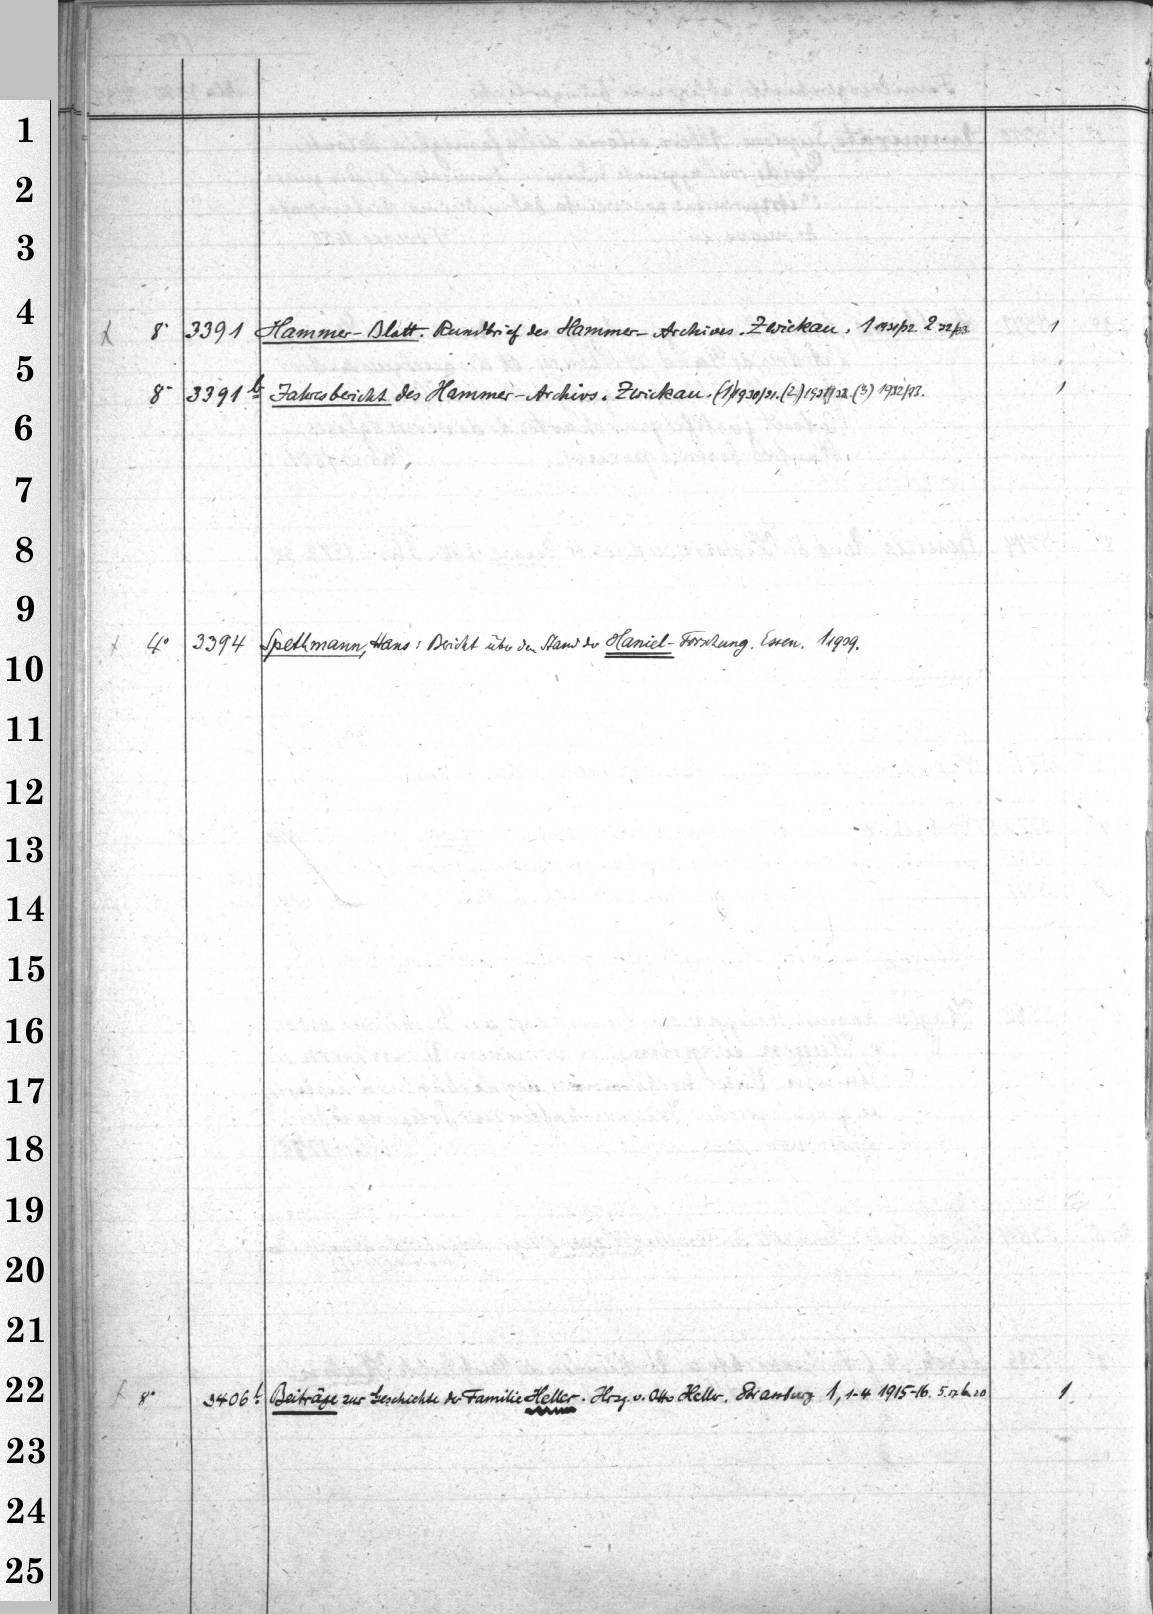 1
2
3
4
x 8° 3391 Hammer-Blatt. Rundbrief des Hammer-Archives. Zwickau. 1 1931/32. 2 32/33. 1
5
8° 3391 b Jahresbericht des Hammer-Archivs. Zwickau. (1) 1930/31. (2) 1931/32. (3) 1932/33. 1
6
7
8
9
x 4° 3394 Spethmann, Hans: Bericht über den Stand der Haniel-Forschung. Essen. 1 1939.
10
11
12
13
14
15
16
17
18
19
20
21
22
x 8° 3406 b Beiträge zur Geschichte der Familie Heller. Hrsg. v. Otto Heller. Strassburg 1, 1-4 1915-16. 5. 17. 6. 20 1
23
24
25